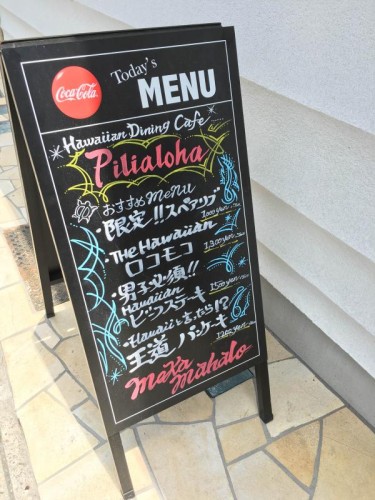 Coca-Cola
Today's
MENU
Hawaiian Dining Cafe
Pilialoha
おすすめmenu
・限定!!スペアリブ
1000yen
・The Hawaiian
ロコモコ
1300yen
・男子必須!!
Hawaiian
ビーフステーキ
1500yen
・Hawaiiと言ったら!?
王道 パンケーキ
1200yen
maxa
mahalo